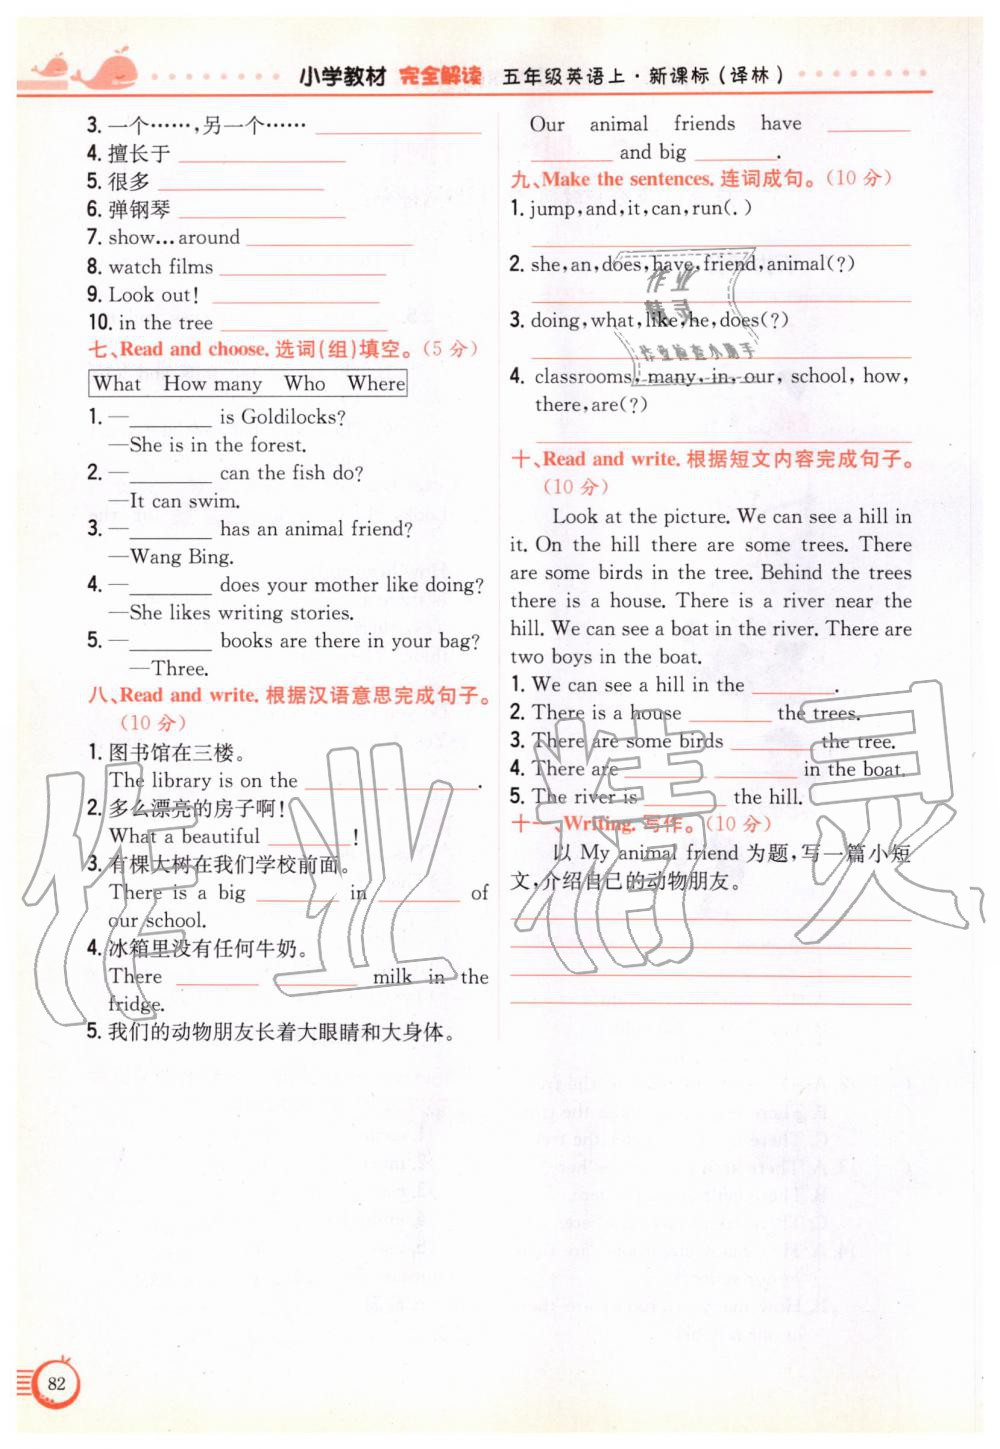 小学教材 完全解读 五年级英语上·新课标(译林)
3. 一个……,另一个……
4. 擅长于
5. 很多
6. 弹钢琴
7. show…around
8. watch films
9. Look out!
10. in the tree
七、Read and choose. 选词(组)填空。(5分)
What How many Who Where
1. —________ is Goldilocks?
—She is in the forest.
2. —________ can the fish do?
—It can swim.
3. —________ has an animal friend?
—Wang Bing.
4. —________ does your mother like doing?
—She likes writing stories.
5. —________ books are there in your bag?
—Three.
八、Read and write. 根据汉语意思完成句子。
(10分)
1. 图书馆在三楼。
The library is on the ________ ________.
2. 多么漂亮的房子啊!
What a beautiful ________!
3. 有棵大树在我们学校前面。
There is a big ________ in ________ of
our school.
4. 冰箱里没有任何牛奶。
There ________ ________ milk in the
fridge.
5. 我们的动物朋友长着大眼睛和大身体。
Our animal friends have ________
________ and big ________.
九、Make the sentences. 连词成句。(10分)
1. jump,and,it,can,run(.)
2. she,an,does,have,friend,animal(?)
3. doing,what,like,he,does(?)
4. classrooms,many,in,our,school,how,
there,are(?)
十、Read and write. 根据短文内容完成句子。
(10分)
Look at the picture. We can see a hill in
it. On the hill there are some trees. There
are some birds in the tree. Behind the trees
there is a house. There is a river near the
hill. We can see a boat in the river. There are
two boys in the boat.
1. We can see a hill in the ________.
2. There is a house ________ the trees.
3. There are some birds ________ the tree.
4. There are ________ ________ in the boat.
5. The river is ________ the hill.
十一、Writing. 写作。(10分)
以 My animal friend 为题,写一篇小短
文,介绍自己的动物朋友。
作业精灵
作业
精灵
作业检查小助手
82